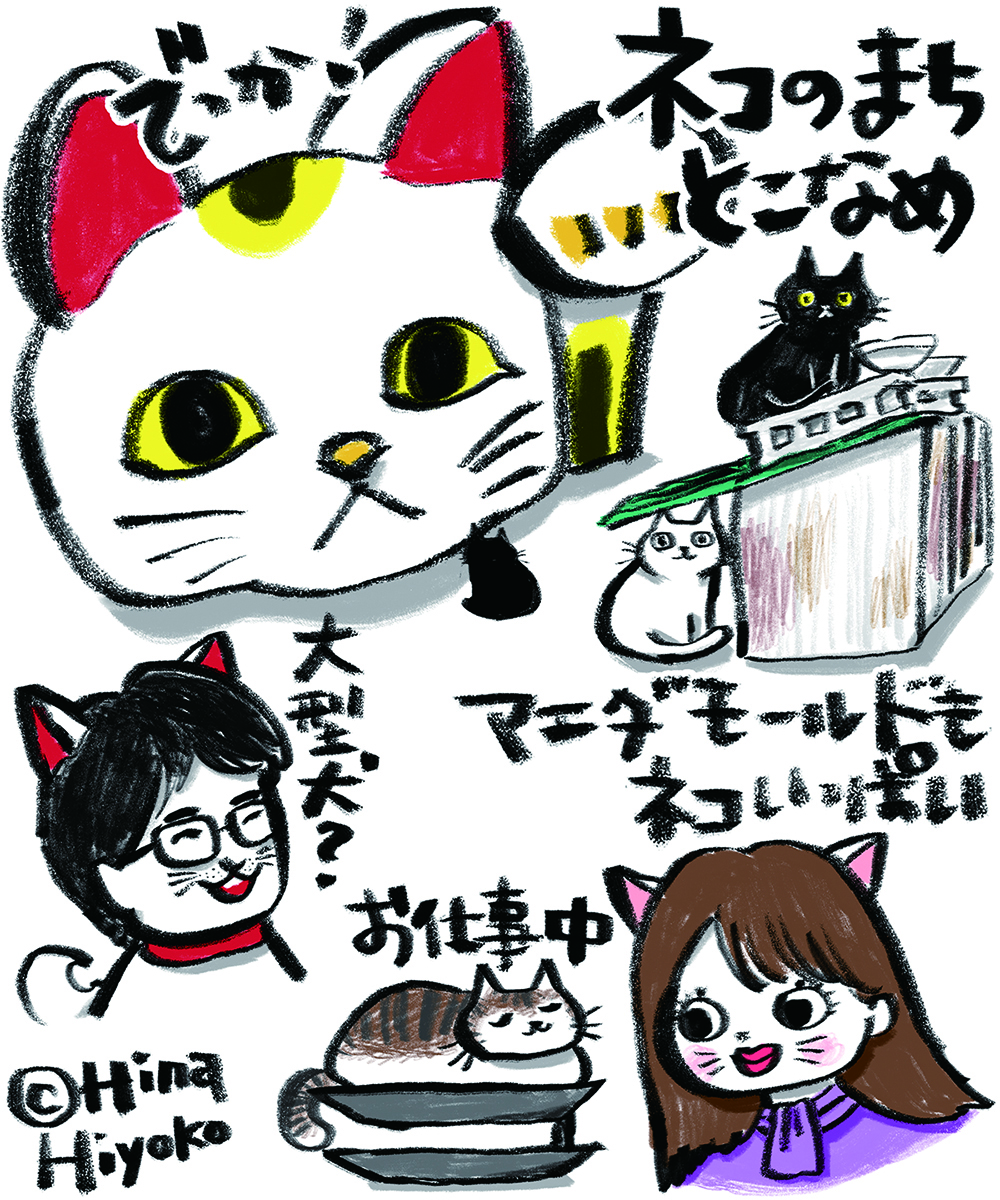 でっか!
ネコのまち
とこなめ
大型犬?
マエダモールドも
ネコいっぱい
お仕事中
©Hina
Hiyoko